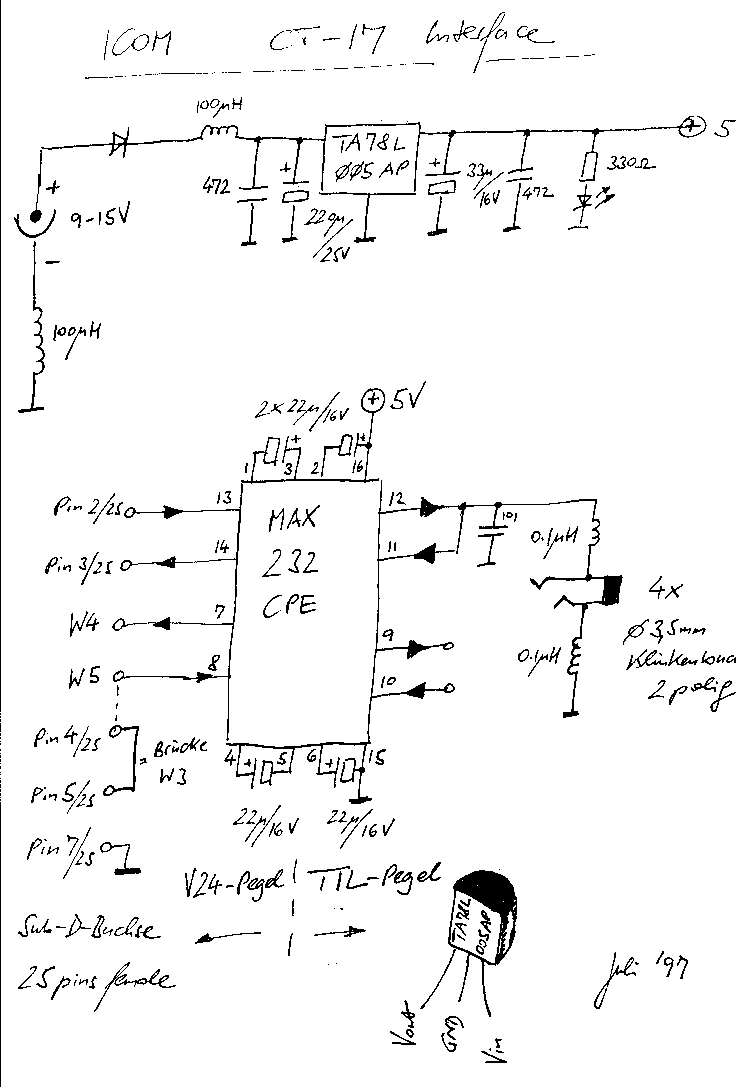 ICOM CT-17 Interface
100µH
TA78L
005AP
+ 5
472
+
220µ/25V
+
33µ/16V
472
330Ω
+
9-15V
-
100µH
2x22µ/16V
+ 5V
+
+
1 3 2 16
Pin 2/25 13
MAX
232
CPE
12
101
0.1µH
Pin 3/25 14
11
W4 7
4x
Ø 3,5mm
9
0.1µH
W5 8
10
2 polig
Pin 4/25
= Brücke
W3
4 + 5 6 + 15
Pin 5/25
22µ/16V 22µ/16V
Pin 7/25
V24-Pegel TTL-Pegel
Sub-D-Buchse
25 pins female
TA78L
005AP
Juli '97
Vout GND Vin